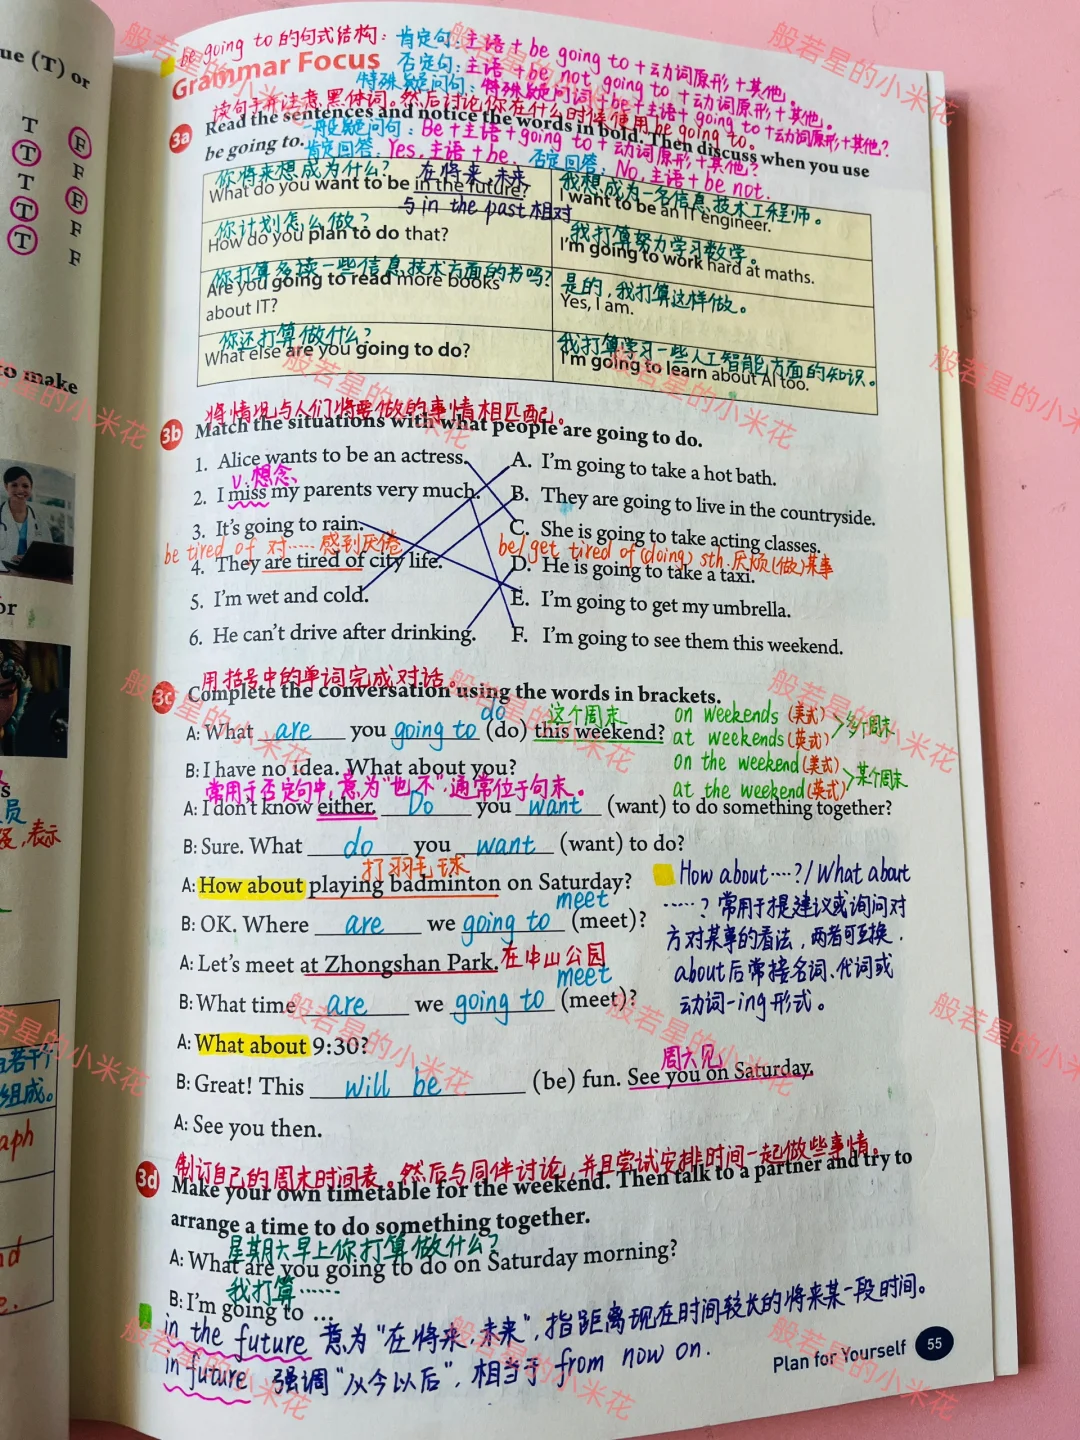 be going to 的句式结构：肯定句：主语＋be going to＋动词原形＋其他。
Grammar Focus
否定句：主语＋be not going to＋动词原形＋其他。
特殊疑问句：特殊疑问词＋be＋主语＋going to＋动词原形＋其他？
读句子并注意黑体词。然后讨论你在什么时候使用be going to。
3a Read the sentences and notice the words in bold. Then discuss when you use
一般疑问句：Be＋主语＋going to＋动词原形＋其他？
be going to.
肯定回答：Yes, 主语＋be. 否定回答：No, 主语＋be not.
你将来想成为什么？ 在将来,未来
What do you want to be in the future?
与in the past相对
我想成为一名信息技术工程师。
I want to be an IT engineer.
你计划怎么做？
How do you plan to do that?
我打算努力学习数学。
I'm going to work hard at maths.
你打算多读一些信息技术方面的书吗？
Are you going to read more books
about IT?
是的，我打算这样做。
Yes, I am.
你还打算做什么？
What else are you going to do?
我打算学习一些人工智能方面的知识。
I'm going to learn about AI too.
将情况与人们将要做的事情相匹配。
3b Match the situations with what people are going to do.
1. Alice wants to be an actress.
v.想念
2. I miss my parents very much.
3. It's going to rain.
be tired of 对……感到厌倦
4. They are tired of city life.
5. I'm wet and cold.
6. He can't drive after drinking.
A. I'm going to take a hot bath.
B. They are going to live in the countryside.
C. She is going to take acting classes.
be/get tired of (doing) sth. 厌烦(做)某事
D. He is going to take a taxi.
E. I'm going to get my umbrella.
F. I'm going to see them this weekend.
用括号中的单词完成对话。
3c Complete the conversation using the words in brackets.
do 这个周末
A: What are you going to (do) this weekend?
on weekends (美式)
at weekends (英式) 多个周末
on the weekend (美式)
at the weekend (英式) 某个周末
B: I have no idea. What about you?
常用于否定句中，意为“也不”，通常位于句末。
A: I don't know either. Do you want (want) to do something together?
B: Sure. What do you want (want) to do?
打羽毛球
A: How about playing badminton on Saturday?
meet
B: OK. Where are we going to (meet)?
A: Let's meet at Zhongshan Park. 在中山公园
meet
B: What time are we going to (meet)?
A: What about 9:30?
周六见
B: Great! This will be (be) fun. See you on Saturday.
A: See you then.
How about……?/What about
……？常用于提建议或询问对
方对某事的看法，两者可互换.
about后常接名词、代词或
动词-ing形式。
制订自己的周末时间表。然后与同伴讨论，并且尝试安排时间一起做些事情。
3d Make your own timetable for the weekend. Then talk to a partner and try to
arrange a time to do something together.
星期六早上你打算做什么？
A: What are you going to do on Saturday morning?
我打算……
B: I'm going to ...
in the future 意为“在将来,未来”，指距离现在时间较长的将来某一段时间。
in future 强调“从今以后”，相当于 from now on.
Plan for Yourself 55
ue (T) or
T F
T F
T F
T F
T F
to make
or
员
,表示
组成。
aph
般若星的小米花